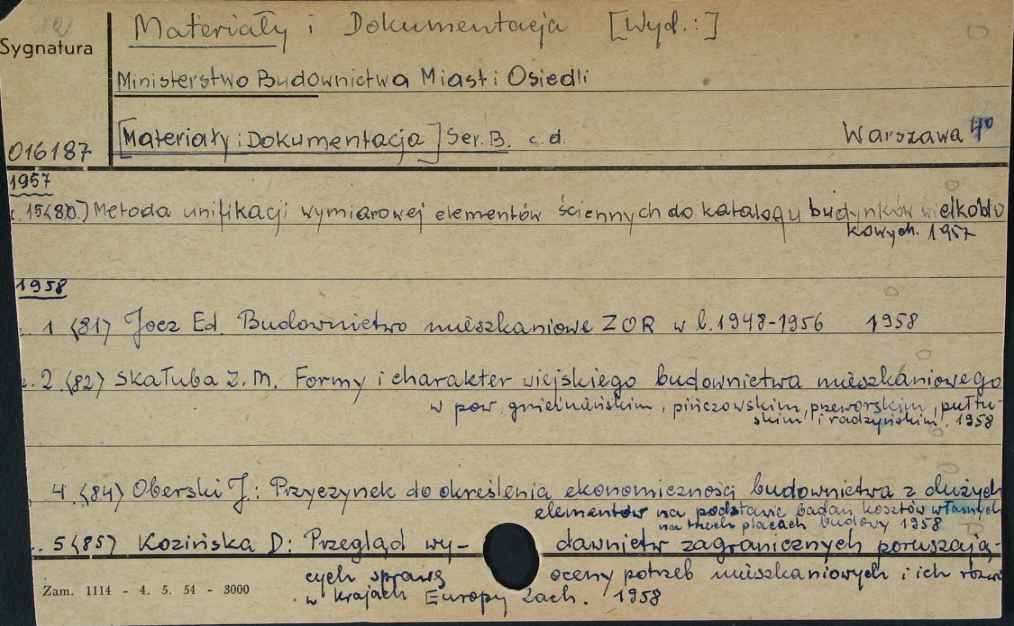 Materiały i Dokumentacja [Wyd.:]
Sygnatura
Ministerstwo Budownictwa Miast i Osiedli
[Materiały i Dokumentacja] Ser. B. c.d. Warszawa 4º
016187
1957
z. 15<80> Metoda unifikacji wymiarowej elementów ściennych do katalogu budynków wielkoblo
kowych. 1957
1958
1 <81> Jocz Ed. Budownictwo mieszkaniowe ZOR w l. 1948-1956 1958
z. 2 <82> Skałuba Z. M. Formy i charakter wiejskiego budownictwa mieszkaniowego
w pow. gnieźnieńskim, pińczowskim, przeworskim, pułtu-
skim i radzyńskim. 1958
4 <84> Oberski J.: Przyczynek do określenia ekonomiczności budownictwa z dużych
elementów na podstawie badań kosztów własnych
na trzech placach budowy 1958
5 <85> Kozińska D: Przegląd wy- dawnictw zagranicznych poruszają-
cych sprawę oceny potrzeb mieszkaniowych i ich
w krajach Europy Zach. 1958
Zam. 1114 - 4. 5. 54 - 3000